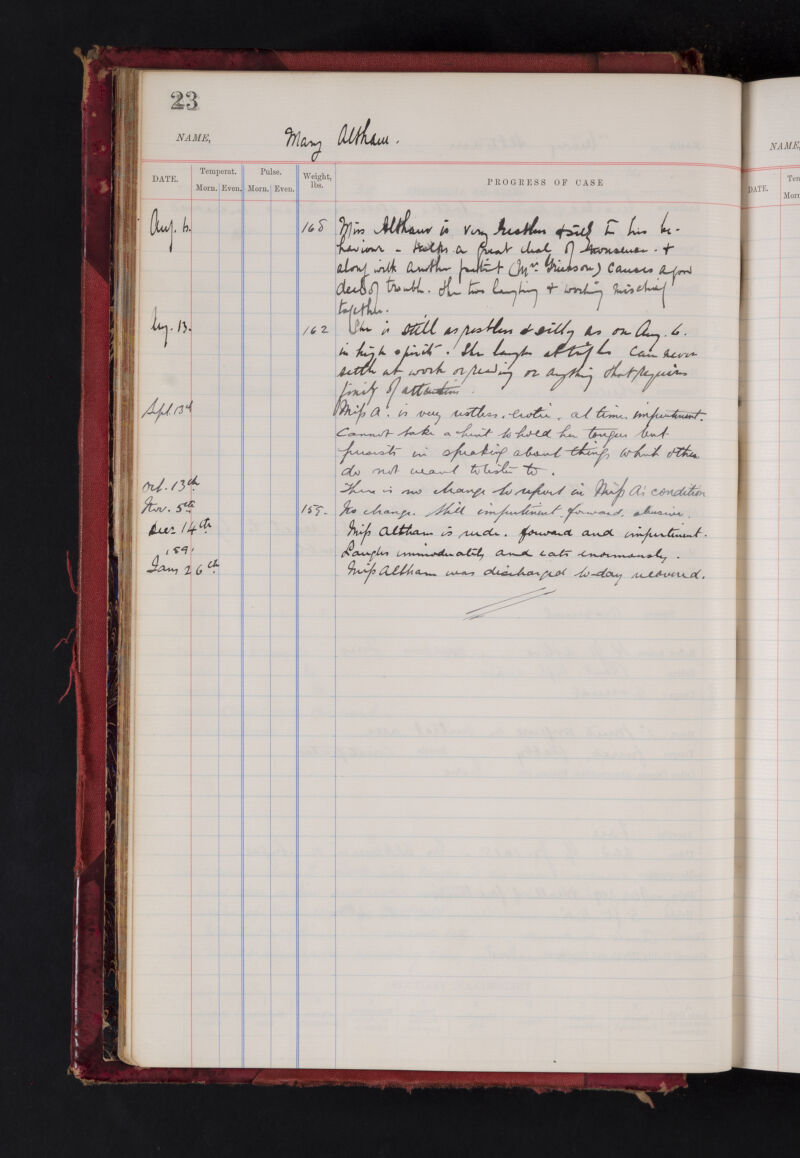 23
NAME, Mary Altham.
NAME,
DATE. Temperat. Pulse. Weight, lbs. PROGRESS OF CASE
Morn. Even. Morn. Even.
DATE.
Aug. 6. 168 Miss Altham is very restless & silly in her be-
haviour - talks a great deal of nonsense. &
along with another patient (Mrs Grierson) causes a good
deal of trouble. The two laughing & working mischief
together.
Aug. 13. 162 She is still as restless & silly as on Aug. 6.
in high spirits. She laughs at trifles. Can never
settle at work or reading or anything that requires
fixity of attention.
Sept 13th Miss A. is very restless, erotic, at times impertinent.
Cannot take a hint to hold her tongue but
persists in speaking about things which others
do not want to listen to.
Oct. 13th There is no change to report in Miss A's condition
Nov. 5th 159. No change. Still impertinent, forward, abusive.
Decr 14th Miss Altham is rude, forward and impertinent.
Laughs immoderately and eats enormously.
'89'
Jany 26th Miss Altham was discharged to-day recovered.